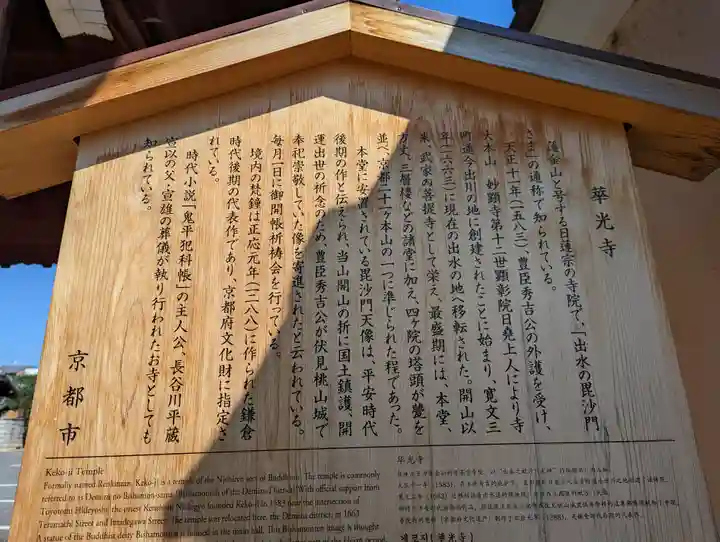 華光寺
蓮金山と号する日蓮宗の寺院で、「出水の毘沙門
さま」の通称で知られている。
天正十一年(一五八三)、豊臣秀吉公の外護を受け、
大本山 妙顕寺第十二世顕彰院日堯上人により寺
町通今出川の地に創建されたことに始まり、寛文三
年(一六六三)に現在の出水の地へ移転された。開山以
来、武家の菩提寺として栄え、最盛期には、本堂、
方丈、三層楼などの諸堂に加え、四ヶ院の塔頭が甍を
並べ、京都二十一ヶ本山の一つに準じられた程であった。
本堂に安置されている毘沙門天像は、平安時代
後期の作と伝えられ、当山開山の折に国土鎮護、開
運出世の祈念のため、豊臣秀吉公が伏見桃山城で
奉祀崇敬していた像を寄進されたと云われている。
毎月一日に御開帳祈祷会を行っている。
境内の梵鐘は正応元年(一二八八)に作られた鎌倉
時代後期の代表作であり、京都府文化財に指定さ
れている。
時代小説「鬼平犯科帳」の主人公、長谷川平蔵
宣以の父・宣雄の葬儀が執り行われたお寺としても
知られている。
京都市
Keko-ji Temple
Formally named Renkinzan Keko-ji is a temple of the Nichiren sect of Buddhism. The temple is commonly
referred to as Demizu no Bishamon-sama "Bishamonten of the Demizu District." With official support from
Toyotomi Hideyoshi, the priest founded Keko-ji in 1583 near the intersection of
Teramachi Street and Imadegawa Street. The temple was relocated here, the Demizu district, in 1663.
A statue of the Buddhist deity Bishamonten is housed in the main hall. This Bishamonten image is thought
华光寺
케코지(華光寺)